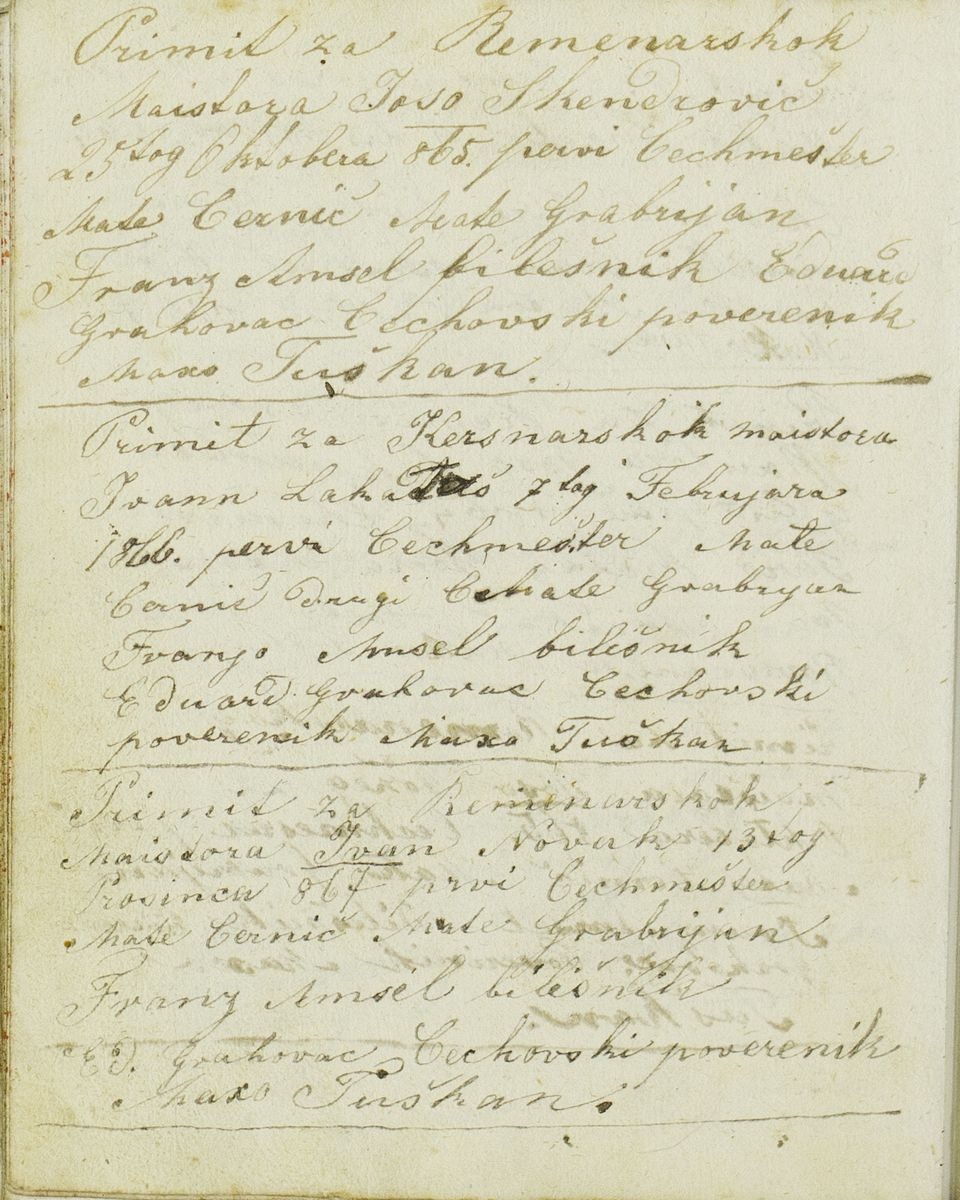 Primit za Remenarskok
Maistora Joso Skendrovič
25tog Oktobera 865. pervi Cechmešter
Mate Cernič Mate Grabrijan
Franz Amsel bilešnik Eduard
Grahovac Cechovski poverenik
Maxo Tuškan.
Primit za Kersnarskok maistora
Ivann 7tog Februjara
1866. pervi Cechmešter Mate
Cernič drugi C Mate Grabryan
Franjo Amsel bilešnik
Eduard Grahovac Cechovski
poverenik Maxo Tuškan
Primit za Remenarskok
Maistora Ivan Novak 13tog
Prosinca 867 prvi Cechmešter
Mate Cernič Mate Grabrijan
Franz Amsel bilešnik
Ed. Grahovac Cechovski poverenik
Maxo Tuškan.